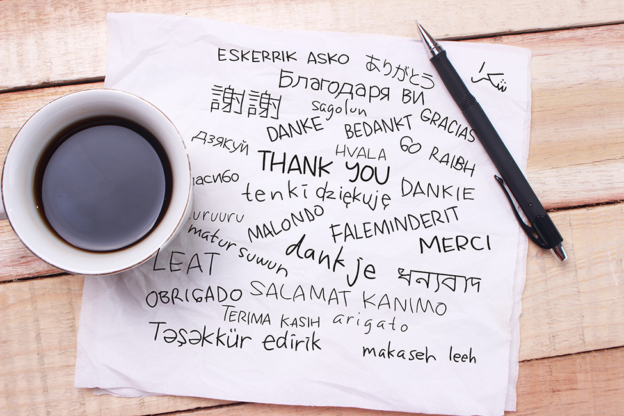 ESKERRIK ASKO
ありがとう
شكرا
Благодаря ви
謝謝
sagolun
DANKE
BEDANKT
GRACIAS
дзякуй
THANK YOU
HVALA
GO RAIBH
асибо
tenki
dziękuję
DANKIE
uruuru
MALONDO
FALEMINDERIT
MERCI
matur suwun
dank je
ধন্যবাদ
LEAT
OBRIGADO
SALAMAT
KANIMO
TERIMA KASIH
arigato
Təşəkkür edirik
makaseh leeh